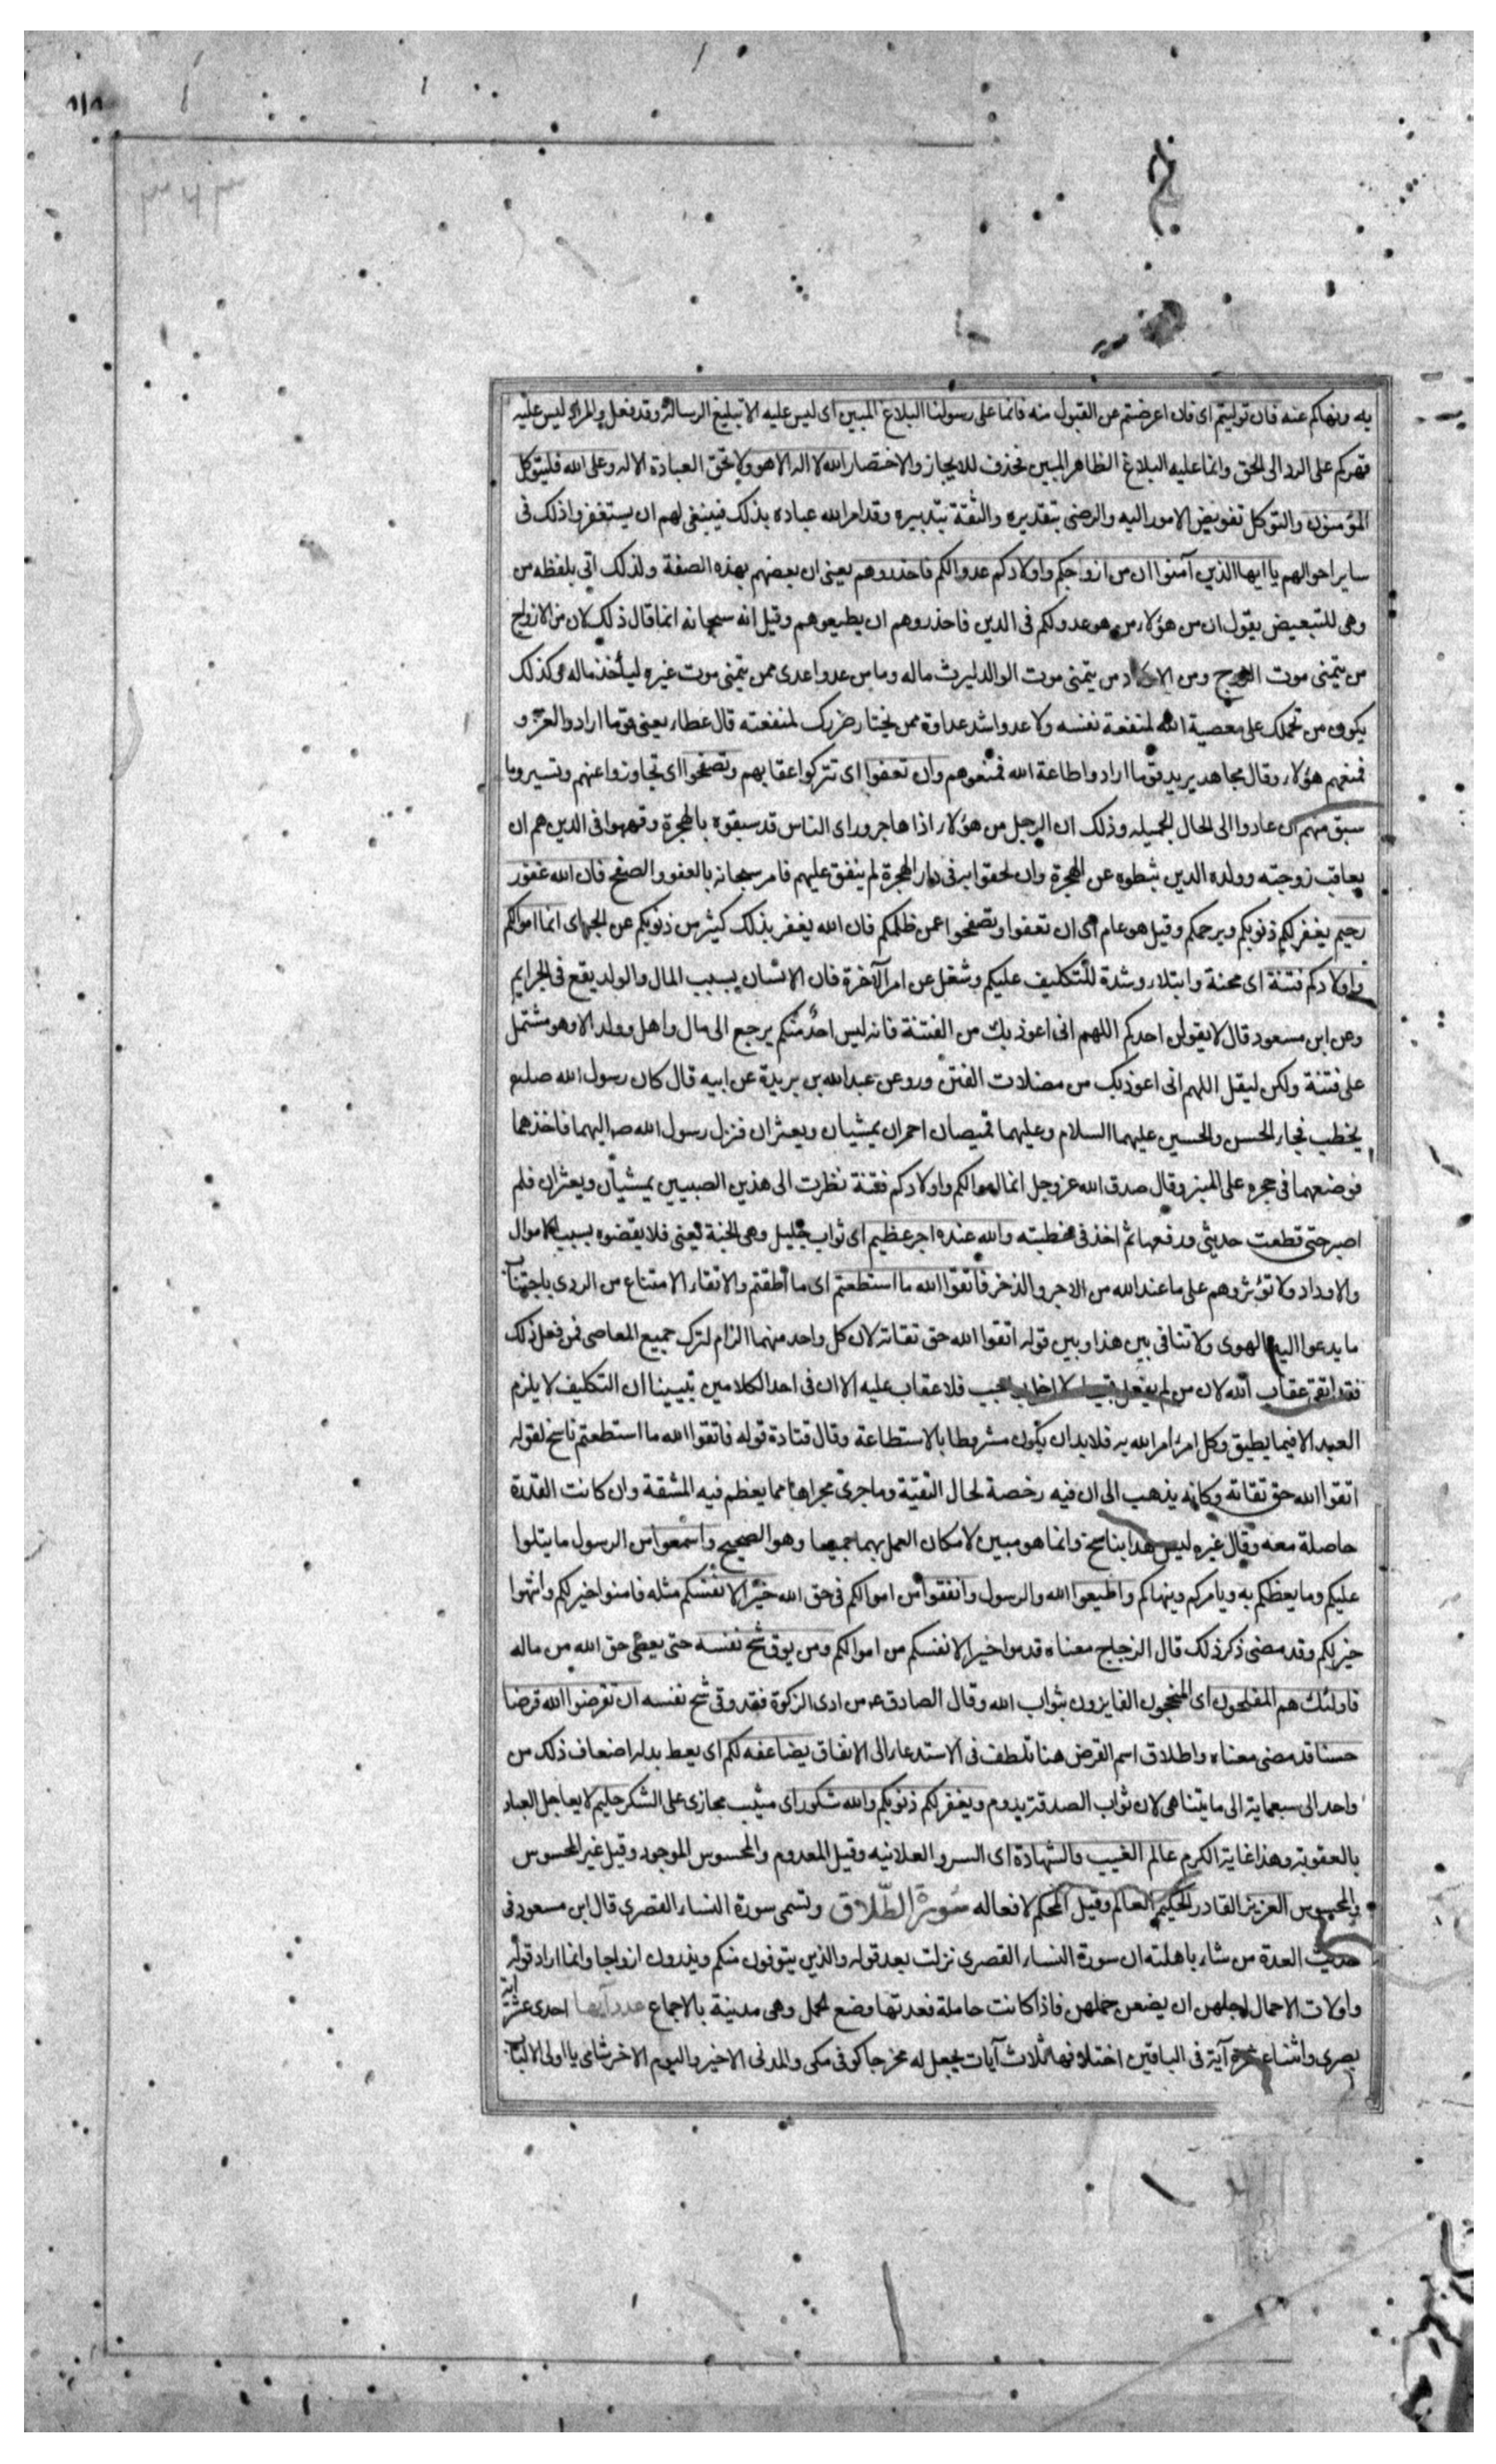 به ونهاكم عنه فان توليتم اى فان اعرضتم عن القبول منه فانما على رسولنا البلاغ المبين اى ليس عليه الا تبليغ الرسالة وقد فعل والمراد ليس عليه
قهركم على الرد الى الحق وانما عليه البلاغ الظاهر المبين فحذف للايجاز والاختصار الله لا اله الا هو ولا تحق العبادة الا له وعلى الله فليتوكل
المؤمنون والتوكل تفويض الامور اليه والرضى بتقديره والثقة بتدبيره وقد امر الله عباده بذلك فينبغى لهم ان يستغفروا ذلك فى
ساير احوالهم يا ايها الذين آمنوا ان من ازواجكم واولادكم عدوا لكم فاحذروهم يعنى ان بعضهم بهذه الصفة ولذلك اتى بلفظه من
وهى للتبعيض يقول ان من هؤلاء من هو عدو لكم فى الدين فاحذروهم ان يطيعوهم وقيل انه سبحانه انما قال ذلك لان من الازواج
من يتمنى موت الزوج ومن الاولاد من يتمنى موت الوالد ليرث ماله وما من عدو اعدى ممن يتمنى موت غيره ليأخذ ماله وكذلك
يكون من تحملك على معصية الله لمنفعة نفسه ولا عدو اشد عداوة ممن يختار ضررك لمنفعته قال عطاء يعنى قوما ارادوا الغزو
فمنعهم هؤلاء وقال مجاهد يريد قوما ارادوا طاعة الله فمنعوهم وان تعفوا اى تتركوا عقابهم وتصفحوا اى تجاوزوا عنهم وتستروا ما
سبق منهم ان عادوا الى الحال الجميله وذلك ان الرجل من هؤلاء اذا هاجر وراى الناس قد سبقوه بالهجرة وفقهوا فى الدين هم ان
يعاقب زوجته وولده الذين ثبطوه عن الهجرة وان لحقوا به فى دار الهجرة لم ينفق عليهم فامر سبحانه بالعفو والصفح فان الله غفور
رحيم يغفر لكم ذنوبكم ويرحمكم وقيل هو عام اى ان تعفوا وتصفحوا عمن ظلمكم فان الله يغفر بذلك كثير من ذنوبكم عن الجبائى انما اموالكم
واولادكم فتنة اى محنة وابتلاء وشدة للتكليف عليكم وشغل عن امر الآخرة فان الانسان بسبب المال والولد يقع فى الجرايم
وعن ابن مسعود قال لا يقولن احدكم اللهم انى اعوذ بك من الفتنة فانه ليس احد منكم يرجع الى مال واهل وولد الا وهو مشتمل
على فتنة ولكن ليقل اللهم انى اعوذ بك من مضلات الفتن وروى عن عبد الله بن بريدة عن ابيه قال كان رسول الله صلعم
يخطب فجاء الحسن والحسين عليهما السلام وعليهما قميصان احمران يمشيان ويعثران فنزل رسول الله ص اليهما فاخذهما
فوضعهما فى حجره على المنبر وقال صدق الله عز وجل انما اموالكم واولادكم فتنة نظرت الى هذين الصبيين يمشيان ويعثران فلم
اصبر حتى قطعت حديثى ورفعهما ثم اخذ فى خطبته والله عنده اجر عظيم اى ثواب جليل وهى الجنة يعنى فلا يقضوه بسبب الاموال
والاولاد ولا تؤثروهم على ما عند الله من الاجر والذخر فاتقوا الله ما استطعتم اى ما اطقتم والاتقاء الامتناع من الردى باجتناب
ما يدعوا اليه الهوى ولا تنافى بين هذا وبين قوله اتقوا الله حق تقاته لان كل واحد منهما الزام لترك جميع المعاصى فمن فعل ذلك
فقد اتقى عقاب الله لان من لم يفعل قبيحا ولا اخل بواجب فلا عقاب عليه الا ان فى احد الكلامين تبيينا ان التكليف لا يلزم
العبد الا فيما يطيق وكل امر امر الله به فلا بد ان يكون مشروطا بالاستطاعة وقال قتادة قوله فاتقوا الله ما استطعتم ناسخ لقوله
اتقوا الله حق تقاته وكانه يذهب الى ان فيه رخصة لحال التقيّة وما جرى مجراها مما يعظم فيه المشقة وان كانت القدرة
حاصلة معه وقال غيره ليس هذا بناسخ وانما هو مبين لامكان العمل بهما جميعا وهو الصحيح واسمعوا من الرسول ما يتلوا
عليكم وما يعظكم به ويامركم وينهاكم واطيعوا الله والرسول وانفقوا من اموالكم فى حق الله خيرا لانفسكم مثله فامنوا خيرا لكم وانتهوا
خيرا لكم وقد مضى ذكر ذلك قال الزجاج معناه قدموا خيرا لانفسكم من اموالكم ومن يوق شح نفسه حتى يعطى حق الله من ماله
فاولئك هم المفلحون اى المنجحون الفايزون بثواب الله وقال الصادق ع من ادى الزكوة فقد وقى شح نفسه ان تقرضوا الله قرضا
حسنا قد مضى معناه واطلاق اسم القرض هنا تلطف فى الاستدعاء الى الانفاق يضاعفه لكم اى يعط بدله اضعاف ذلك من
واحد الى سبعماية الى ما يتناهى لان ثواب الصدقة يدوم ويغفر لكم ذنوبكم والله شكور اى مثيب مجازى على الشكر حليم لا يعاجل العباد
بالعقوبة وهذا غاية الكرم عالم الغيب والشهادة اى السر والعلانيه وقيل المعدوم والمحسوس الموجود وقيل غير المحسوس
والمحسوس العزيز القادر الحكيم العالم وقيل المحكم لافعاله سورة الطّلاق وتسمى سورة النساء القصرى قال ابن مسعود فى
حديث العدة من شاء باهلته ان سورة النساء القصرى نزلت بعد قوله والذين يتوفون منكم ويذرون ازواجا وانما اراد قوله
واولات الاحمال اجلهن ان يضعن حملهن فاذا كانت حاملة فعدتها وضع الحمل وهى مدينة بالاجماع عدد آيها احدى عشرة اية
بصرى واثنتا عشرة آية فى الباقين اختلافها ثلاث آيات يجعل له مخرجا كوفى مكى والمدنى الاخير واليوم الاخر شامى يا اولى الالباب